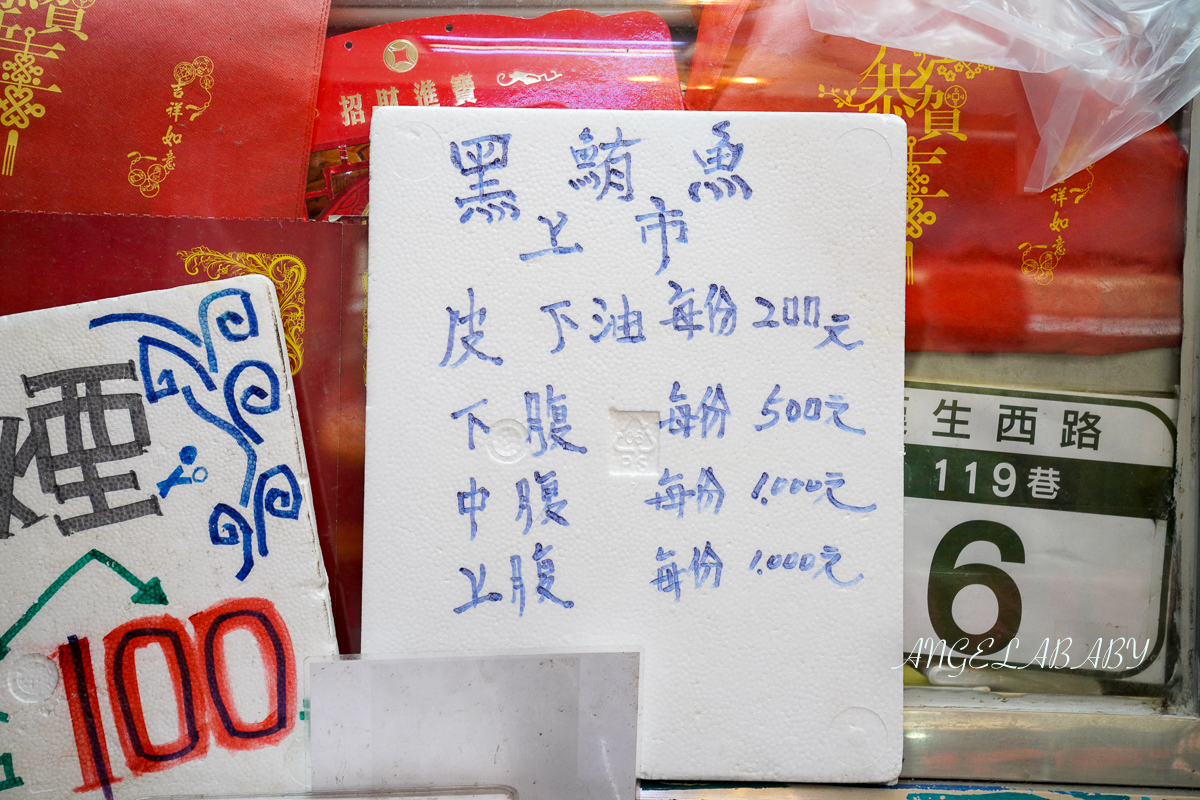 恭賀
吉祥如意
招財進寶
恭賀
吉祥如意
黑鮪魚
上市
皮下油 每份 200元
下腹 每份 500元
中腹 每份 1.000元
上腹 每份 1.000元
煙
100
生西路
119巷
6
ANGELABABY